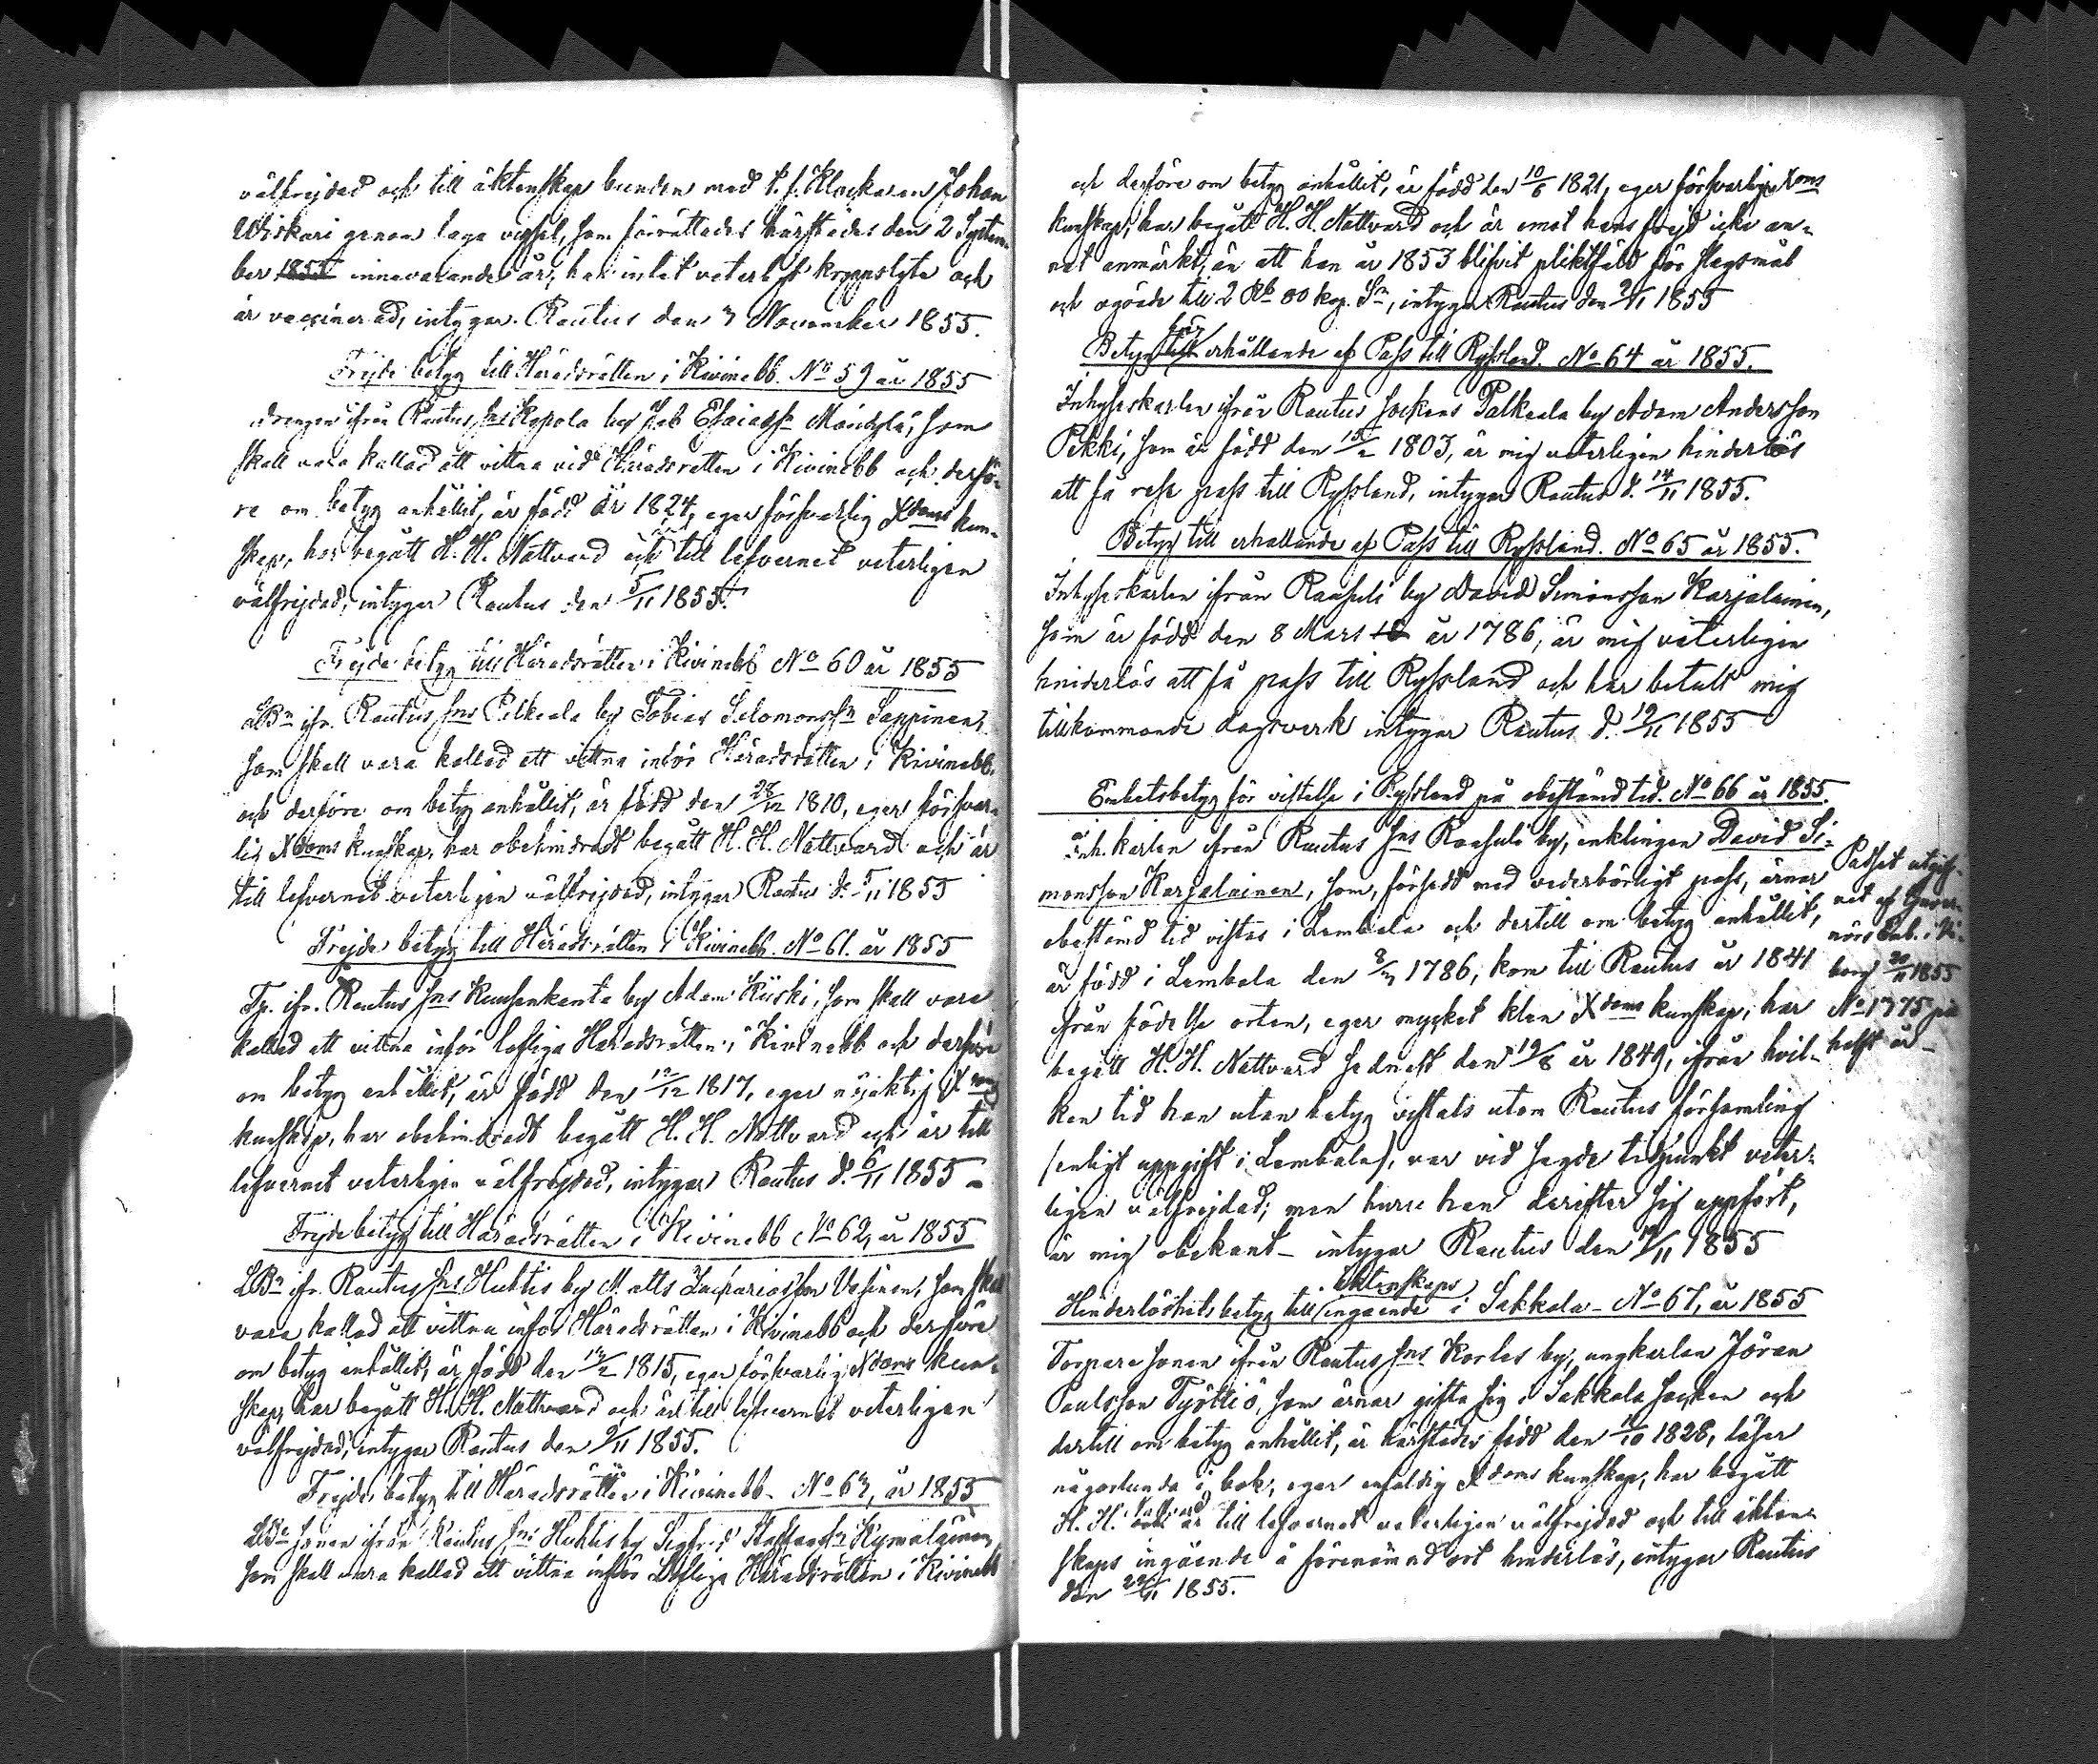 välfrejdad och till äktenskap bunden med t. f. Klockaren Johan
Wiskari genom laga vigsel, som förrättades härstädes den 2 Septem-
ber 1855 innevarande år, har intet veterligt kroppslyte och
är vaccinerad, intygar. Rautus den 3 November 1855.
Frejde betyg till Häradsrätten i Kivinebb. No 59 år 1855
drengen ifrån Rautus sns by Esaiass
skall vara kallad att vittna vid Häradsretten i Kivinebb och derfö-
re om betyg anhållit, är född år 1824, eger försvarlig Xdoms kun-
skap, har begått H. H. Nattvard och till lefvernet veterligen
välfrejdad, intygar Rautus den 5/11 1855.
Frejde betyg till Häradsrätten i Kivinebb No 60 år 1855
LBn ifr. Rautus sns Palkeala by Tobias Salomonssn Sappinen,
som skall vara kallad att vittna inför Häradsrätten i Kivinebb
och derföre om betyg anhållit, är född den 28/12 1810, eger försvar-
lig Xdoms kunskap, har obehindradt begått H. H. Nattvard och är
till lefvernet veterligen välfrejdad, intygar Rautus d. 5/11 1855
Frejde betyg till Häradsrätten i Kivinebb. No 61. år 1855
Tp. ifr. Rautus sns Kuusenkanta by Adam Kiiski, som skall vara
kallad att vittna inför lofliga Häradsrätten i Kivinebb och derföre
om betyg anhållit, är född den 12/12 1817, eger nöjaktig Xdoms
kunskap, har obehindradt begått H. H. Nattvard och är till
lefvernet veterligen välfrejdad, intygar Rautus d. 6/11 1855 -
Frejdebetyg till Häradsrätten i Kivinebb No 62, år 1855
LBn ifr. Rautus sns Huhtis by Matts Vesinen, som skall
vara kallad att vittna inför Häradsrätten i Kivinebb och derföre
om betyg anhållit, är född den 1815, eger försvarlig Xdoms kun-
skap, har begått H. H. Nattvard och är till lefvernet veterligen
välfrejdad, intygar Rautus den 9/11 1855.
Frejde betyg till Häradsrätten i Kivinebb. No 63, år 1855
LBn sonen ifrån Rautus sns Huhtis by Sigfrid Staffanssn Kymäläinen,
som skall vara kallad att vittna inför Lofliga Häradsrätten i Kivinebb
och derföre om betyg anhållit, är född den 10/6 1821, eger försvarlig Xdoms
kunskap, har begått H. H. Nattvard och är emot hans frejd icke an-
nat anmärkt, än att han år 1853 blifvit pliktfäld för slagsmål
och ogräde till 2 Rb 80 kop. Sr, intygar Rautus den 9/11 1855
Betyg till för erhållande af Pass till Ryssland. No 64 år 1855.
Inhyseskarlen ifrån Rautus sockens Palkeala by Adam Andersson
Pekki, som är född den 1803, är mig veterligen hinderlös
att få rese pass till Ryssland, intygar Rautus d. 14/11 1855.
Betyg till erhallande af Pass till Ryssland. No 65 år 1855.
Inhyseskarlen ifrån Raasuli by David Simonsson Karjalainen,
som är född den 8 Mars år 1786, är mig veterligen
hinderlös att få pass till Ryssland och har betalt mig
tillkommande dagsverk intygar Rautus d. 19/11 1855
Embetsbetyg för vistelse i Ryssland på obestämd tid. No 66 år 1855.
Inh. karlen ifrån Rautus sns Raasuli by, enklingen David Si-
monsson Karjalainen, som, försedd med vederbörligt pass, ärnar
obestämd tid vistas i Lembala och dertill om betyg anhållit,
är född i Lembala den 8/3 1786, kom till Rautus år 1841
ifrån födelse orten, eger mycket klen Xdoms kunskap, har
begått H. H. Nattvard sednast den 19/8 år 1849, ifrån hvil-
ken tid han utan betyg vistats utom Rautus församling
(enligt uppgift i Lembala), var vid sagde tidpunkt veter-
ligen välfrejdad; men huru han derefter sig uppfört,
är mig obekant - intygar Rautus den 19/11 1855
Passet utgif-
vet af Guver-
nörs Emb. i Vi-
borg 20/11 1855
No 1775 på
halft år -
Hinderlöshets betyg till äktenskaps ingående i Sakkola - No 67, år 1855
Torpare sonen ifrån Rautus sns Korles by, ungkarlen Jöran
Paulsson Työttiö, som ärnar gifta sig i Sakkola socken och
dertill om betyg anhållit, är härstädes född den 1828, läser
någorlunda i bok, eger enfaldig Xdoms kunskap, har begått
H. H. Nattvard är till lefvernet veterligen välfrejdad och till äkten-
skaps ingående å förenämnd ort hinderlös, intygar Rautus
den 22/11 1855.